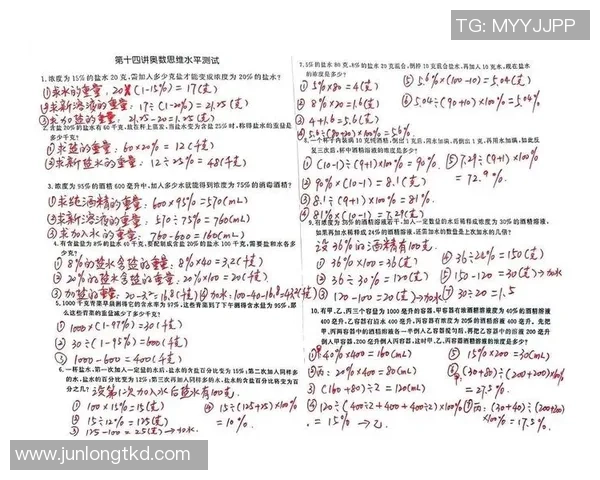 TG: MYYJJPP
第十四讲奥数思维水平测试
1. 浓度为 15% 的盐水 20 克,需加入多少克盐才能变成浓度为 20% 的盐水?
①求水的重量: 20×(1-15%) = 17(克)
②求新溶液的重量: 17÷(1-20%) = 21.25(克)
③求加盐的重量: 21.25-20=1.25(克)
2. 含盐 20% 的盐水有 60 千克,放在秤上蒸发,当盐水变为含盐 25% 时,称得盐水的重量是多少千克?
①求盐的重量: 60×20% = 12(千克)
②求新盐水的重量: 12÷25% = 48(千克)
3. 浓度为 95% 的酒精 600 毫升中,加入多少水就能得到浓度为 75% 的消毒酒精?
①求纯酒精的重量: 600×95%=570(mL)
②求新溶液的重量: 570÷75% = 760(mL)
③求加入水的重量: 760-600=160(mL)
4. 有含盐量为 8% 的盐水 40 千克,要配制成含盐 20% 的盐水 100 千克,需要盐和水各多少克?
①8%的盐水含盐的重量: 8%×40 = 3.2(千克)
②20%的盐水含盐的重量: 20%×100 = 20(千克)
③加盐的重量: 20-3.2=16.8(千克) ④加水: 100-40-16.8=43.2(千克)
5. 1000 千克青菜早晨测得它的含水率为 97%,这些青菜到了下午测得含水量为 95%,那么这些青菜的重量减少了多少千克?
①1000×(1-97%)=30(千克)
②30÷(1-95%)=600(千克)
③1000-600=400(千克)
6. 一杯盐水,第一次加入一定量的水后,盐水的含盐百分比变为 15%;第二次加入同样多的水,盐水的百分比变为 12%;第三次再加入同样多的水,盐水的含盐百分比将变为百分之几?
设第1次加入水后盐水有100克.
①100×15%=15(克)
②15÷12%=125(克)
③125-100=25(克)→加水
④15÷(125+25)×100%
=10%.
7. 5% 的盐水 80 克,8% 的盐水 20 克混合,倒掉 10 克混合盐水,再加入 10 克水,现在盐水的浓度是多少?
①5%×80=4(克)
②8%×20=1.6(克)
③4+1.6=5.6(克)
④5.6÷(80+20)×100%=5.6%
⑤5.6%×(100-10)=5.04(克)
⑥5.04÷(90+10)×100%=5.04%.
8. 一个杯子内装满 10 克纯酒精,倒出 1 克后,用水加满,再倒出 1 克,再用水加满,如此反复三次后,杯中酒精溶液的浓度是多少?
①(10-1)÷(9+1)×100%=90%
②90%×(10-1)=8.1(克)
③8.1÷(9+1)×100%=81%
④81%×(10-1)=7.29(克)
⑤7.29÷(9+1)×100%
=72.9%.
9. 有浓度为 36% 的酒精溶液若干,加入一定数量的水后稀释成浓度为 30% 的酒精溶液,如果再加水稀释成 24% 的酒精溶液,还需加水的数量是上次加水的几倍?
设36%的酒精有100克.
①36%×100=36(克)
②36÷30%=120(克)
③120-100=20(克)→加水
④36÷24%=150(克)
⑤150-120=30(克)→加水
⑦30÷20=1.5
10. 有甲、乙、丙三个容器为 1000 毫升的容器,甲容器有浓度为 40% 的酒精溶液 400 毫升,乙容器有清水 400 毫升,丙容器有浓度为 20% 的酒精溶液 400 毫升,先把甲、丙两容器中的酒精溶液各一半倒入乙容器搅匀后,再把乙容器中的溶液 200 毫升倒入甲容器,200 毫升倒入丙容器,这时甲、乙、丙容器酒精溶液的浓度是多少?
①甲: 40%×400=160(mL)
②丙: 20%×400=80(mL)
③(160+80)÷2=120(mL)
④120÷(400÷2+400+400÷2)×100%
=15% →乙
⑤15%×200=30(mL)
⑥甲: (30+80)÷(200+200)×100%
=27.5%
⑦丙: (30+40)÷(200+200)
×100%=17.5%.
www.junlongtkd.com